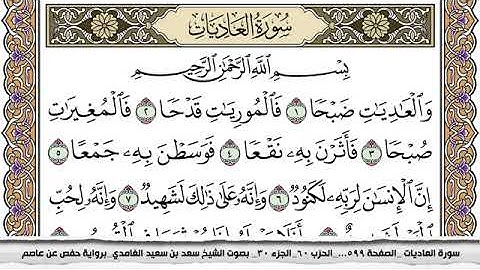 سُورَةُ العَادِيَاتِ
بِسْمِ اللَّهِ الرَّحْمَٰنِ الرَّحِيمِ
وَالْعَادِيَاتِ ضَبْحًا ١ فَالْمُورِيَاتِ قَدْحًا ٢ فَالْمُغِيرَاتِ
صُبْحًا ٣ فَأَثَرْنَ بِهِۦ نَقْعًا ٤ فَوَسَطْنَ بِهِۦ جَمْعًا ٥
إِنَّ الْإِنسَانَ لِرَبِّهِۦ لَكَنُودٌ ٦ وَإِنَّهُۥ عَلَىٰ ذَٰلِكَ لَشَهِيدٌ ٧ وَإِنَّهُۥ لِحُبِّ
سورة العاديات _الصفحة ٥٩٩... الحزب ٦٠_ الجزء ٣٠_ بصوت الشيخ سعد بن سعيد الغامدي_برواية حفص عن عاصم